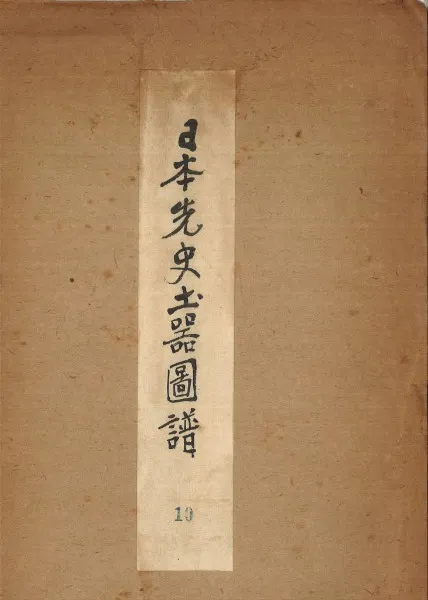 日本先史土器圖譜
10